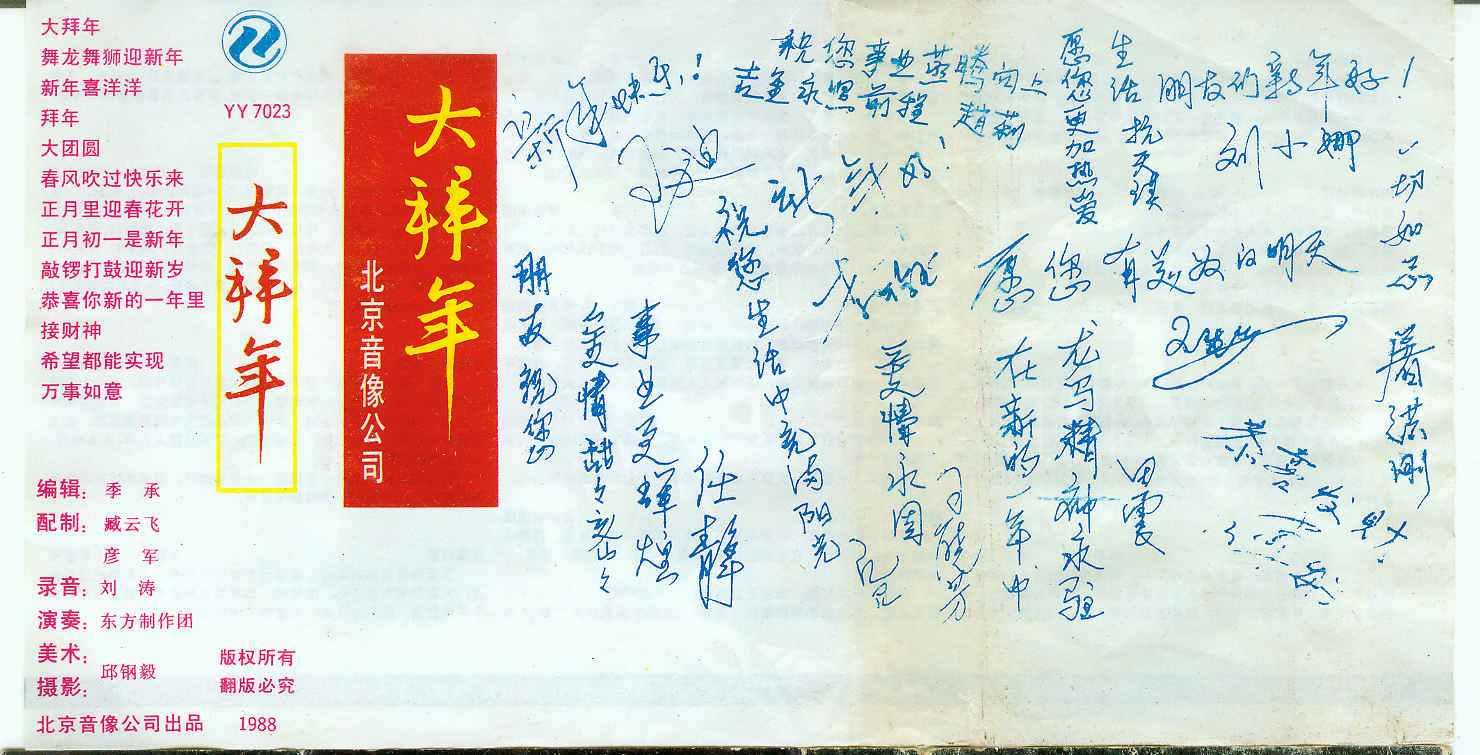 大拜年
舞龙舞狮迎新年
新年喜洋洋
拜年
大团圆
春风吹过快乐来
正月里迎春花开
正月初一是新年
敲锣打鼓迎新岁
恭喜你新的一年里
接财神
希望都能实现
万事如意
编辑：季 承
配制：臧云飞
彦 军
录音：刘 涛
演奏：东方制作团
美术：
摄影：
邱钢毅
北京音像公司出品 1988
YY 7023
大拜年
版权所有
翻版必究
大拜年
北京音像公司
祝您事业蒸腾向上
永照前程
赵莉
愿您更加热爱
生活
朋友们新年好！
刘小娜
一切如意
愿您有美好的明天
新年好！
祝您生活中充满阳光
朋友祝您
事业更辉煌
爱情甜々
任静
爱情永固
在新的一年中
龙马精神永驻
田震
恭喜发财